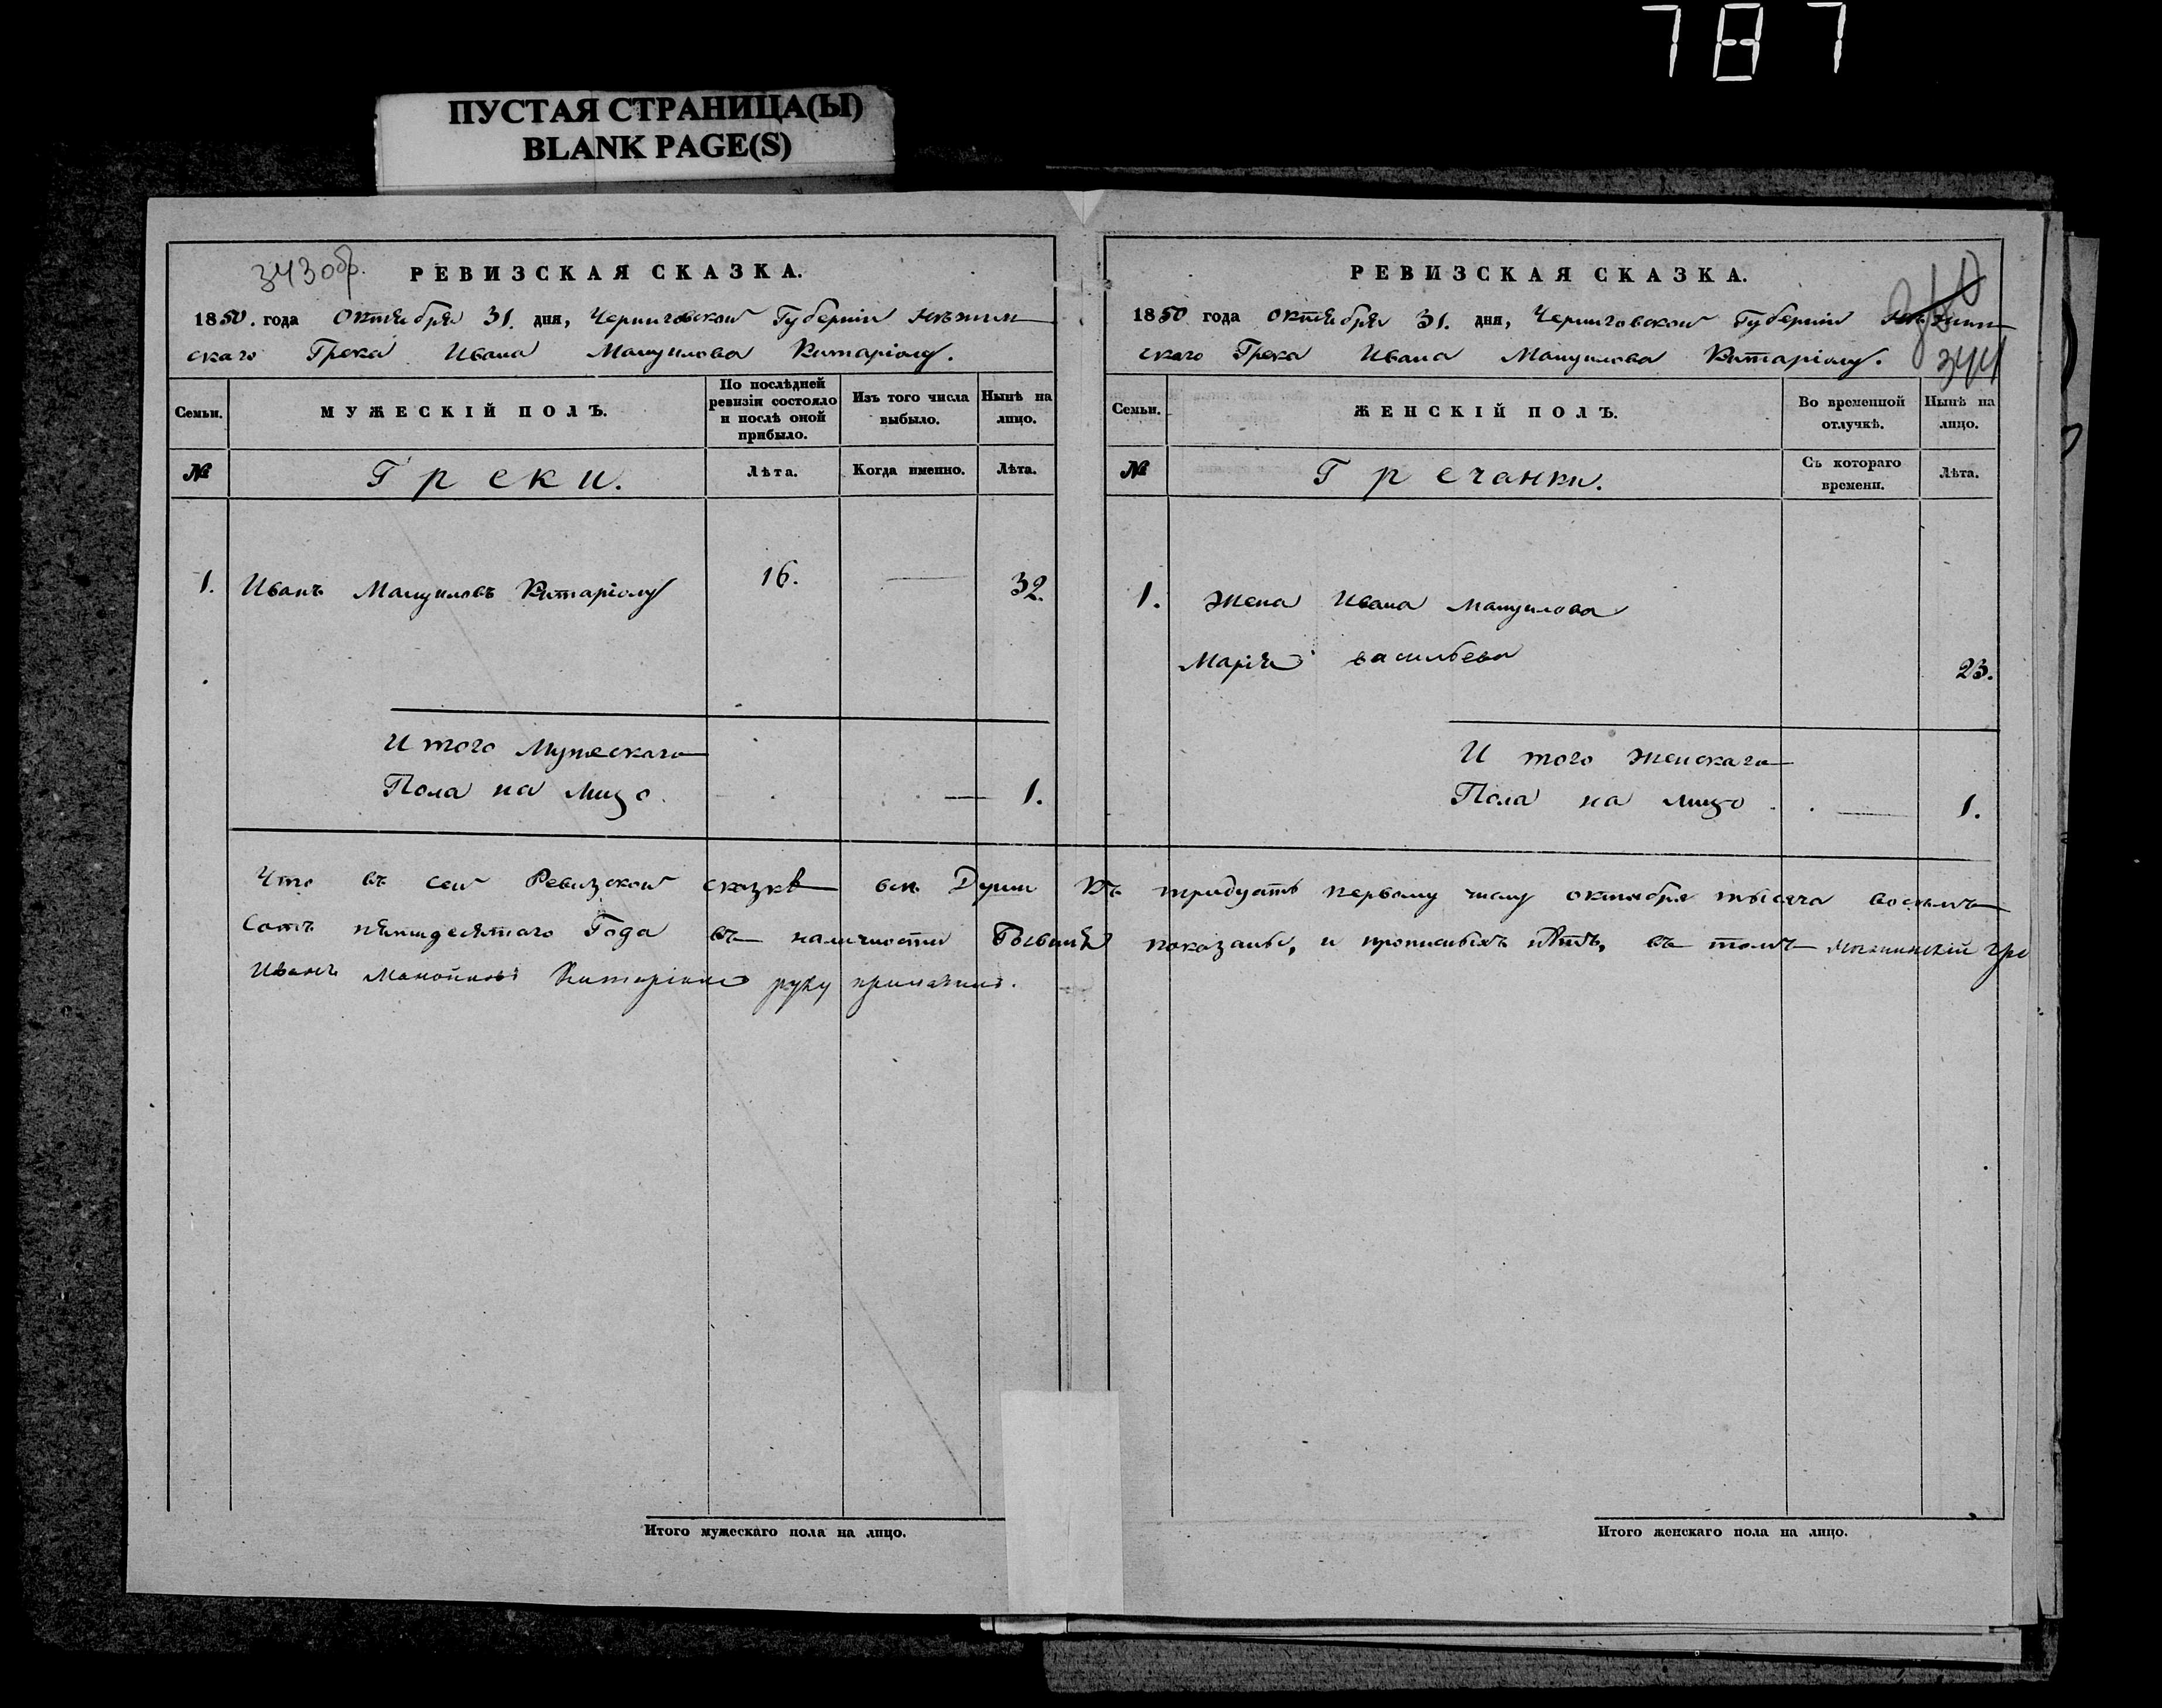 787
ПУСТАЯ СТРАНИЦА(Ы)
BLANK PAGE(S)
343 об.
РЕВИЗСКАЯ СКАЗКА.
1850. года Октября 31. дня, Черниговской Губернiи Нѣжин
скаго Грека Ивана Мануилова Китарiолу.
Семьи.
МУЖЕСКIЙ ПОЛЪ.
По послѣдней ревизiи состояло и послѣ оной прибыло.
Изъ того числа выбыло.
Нынѣ на лицо.
№
Греки.
Лѣта.
Когда именно.
Лѣта.
1. Иванъ Мануиловъ Китарiолу 16. 32.
И того Мужескаго
Пола на лицо. 1.
РЕВИЗСКАЯ СКАЗКА.
344
1850 года Октября 31. дня, Черниговской Губернiи Нѣжин
скаго Грека Ивана Мануилова Китарiолу.
Семьи.
ЖЕНСКIЙ ПОЛЪ.
Во временной отлучкѣ.
Нынѣ на лицо.
№
Гречанки.
Съ котораго времени.
Лѣта.
1. Жена Ивана Мануилова
Марiя васильева 23.
И того Женскаго
Пола на лицо 1.
Что въ сей Ревизской сказкѣ всѣ Души къ тридцать первому числу октября тысяча восемь
сотъ пятидесятаго Года въ наличности Бывшiя показаны, и прописныхъ нѣтъ, въ томъ Нѣжинскiй гре
Иванъ Манойловъ Китарiоло руку приложилъ.
Итого мужескаго пола на лицо.
Итого женскаго пола на лицо.